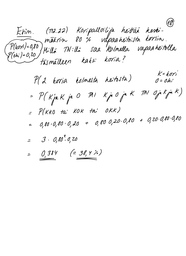 Esim. (172.22) Koripalloilija heittää keski-
määrin 80 % vapaaheitoista koriin.
P(kori)=0,80
P(ohi)=0,20
Millä TN:llä saa kolmella vapaaheitolla
täsmälleen kaksi koria?
P(2 koria kolmesta heitosta)
K=kori
O=ohi
= P(K ja K ja O TAI K ja O ja K TAI O ja K ja K)
= P(KKO tai KOK tai OKK)
= 0,80·0,80·0,20 + 0,80·0,20·0,80 + 0,20·0,80·0,80
= 3 · 0,80²·0,20
= 0,384 (= 38,4 %)